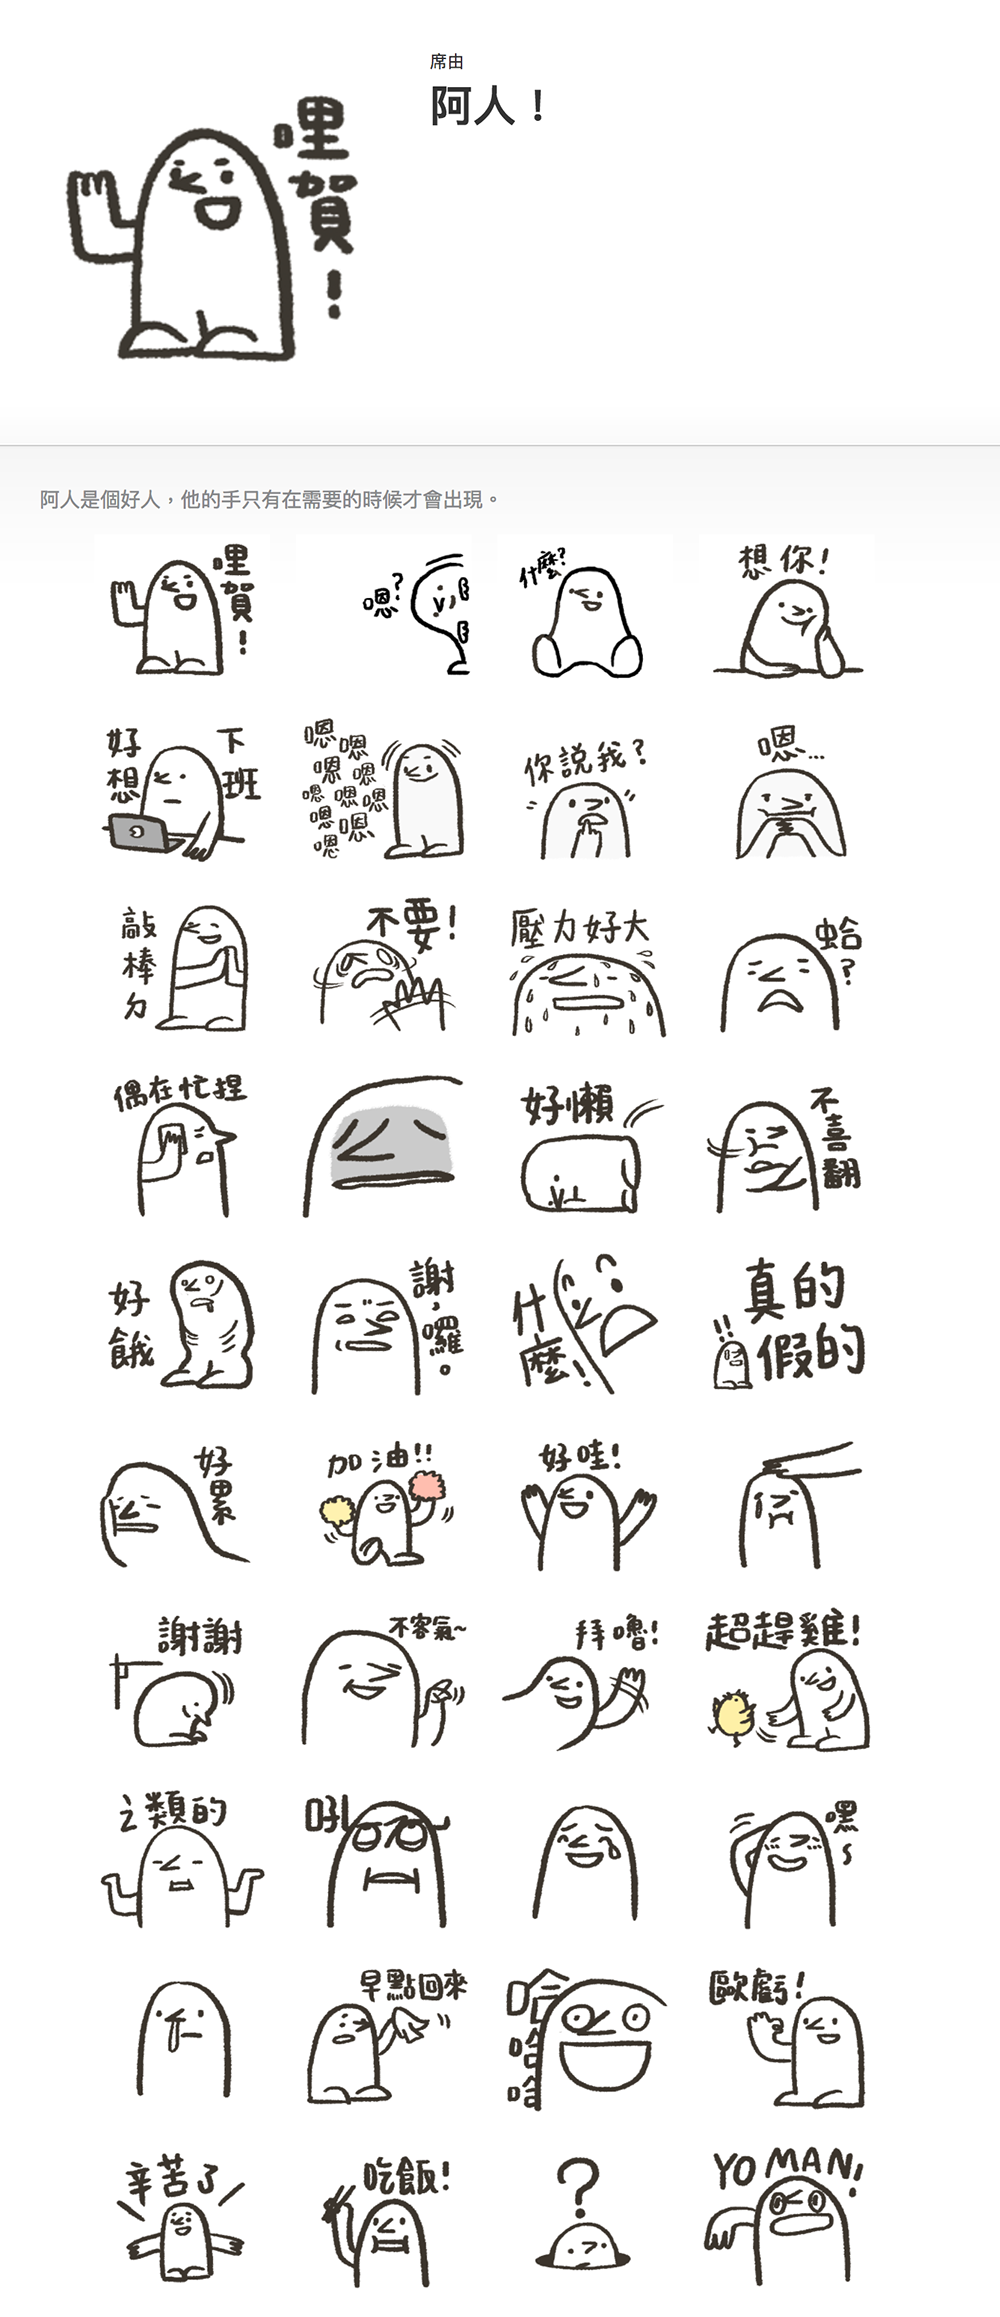 席由
阿人！
哩賀！
阿人是個好人，他的手只有在需要的時候才會出現。
哩賀！
嗯？
什麼？
想你！
好想下班
嗯嗯嗯嗯嗯嗯嗯嗯嗯嗯
你說我？
嗯...
敲棒ㄉ
不要！
壓力好大
蛤？
偶在忙捏
好懶
不喜翻
好餓
謝，囉。
什麼！
真的假的
!!
好累
加油!!
好哇！
謝謝
不客氣~
拜嚕！
超趕雞！
之類的
吼
嘿~
早點回來
哈哈哈
歐虧！
辛苦了
吃飯！
?
YO MAN!